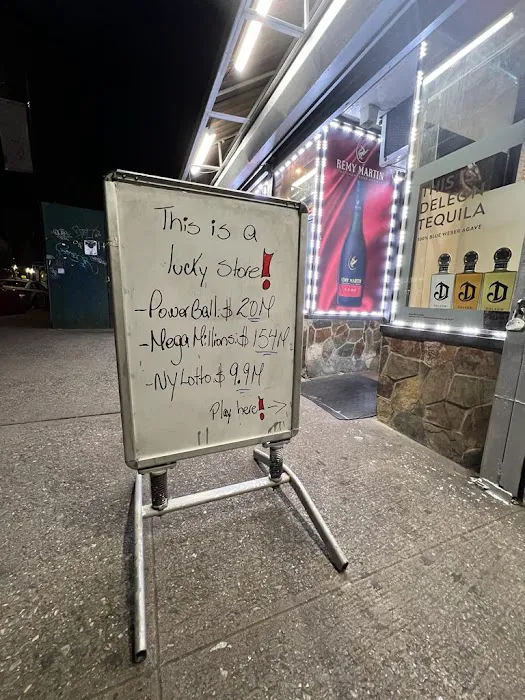 This is a
lucky store!
-PowerBall.$ 20M
-Mega Millions:$ 154M
-NY Lotto.$ 9.9M
Play here! ->
REMY MARTIN
THIS IS
DELEÓN
TEQUILA
100% BLUE WEBER AGAVE